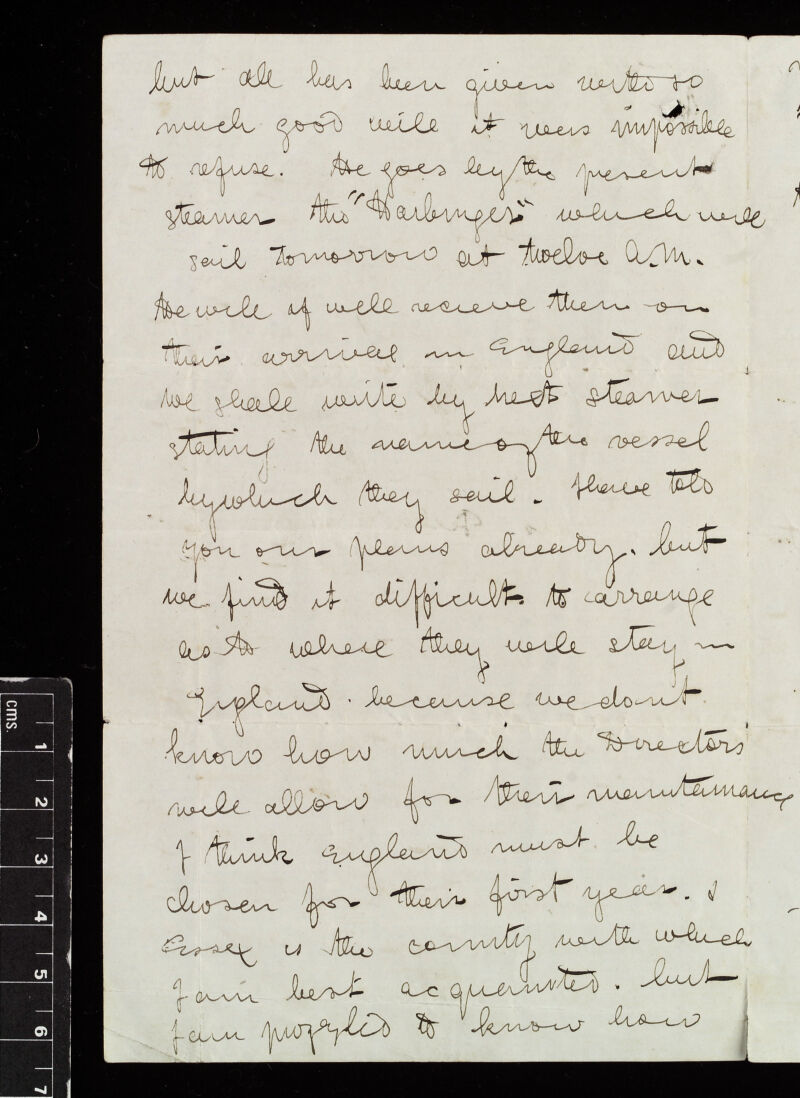 but all has been given with so
much good will it was impossible
to refuse. He goes by the present
steamer the "Harbinger" which will
sail tomorrow at twelve A.M.
He will if well recieve them on
their arrival in England and
we shall write by next steamer
stating the name of the vessel
by which they sail. I have told
you our plans already. but
we find it difficult to arrange
as to where they will stay in
England. because we dont
know how much the Directors
will allow for their maintainance
I think England must be
chosen for their first year. &
Essex is the county with which
I am best acquainted. but
I am puzzled to know how
cms.
1
2
3
4
5
6
7